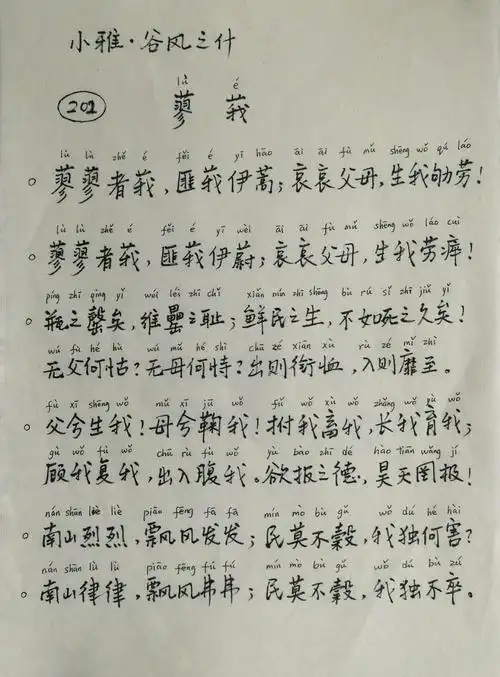 小雅·谷风之什
lù é
202 蓼莪
lù lù zhě é fěi é yī hāo āi āi fù mǔ shēng wǒ qú láo
○ 蓼蓼者莪，匪莪伊蒿；哀哀父母，生我劬劳！
lù lù zhě é fěi é yī wèi āi āi fù mǔ shēng wǒ láo cuì
○ 蓼蓼者莪，匪莪伊蔚；哀哀父母，生我劳瘁！
píng zhī qìng yǐ wéi léi zhī chǐ xiǎn mín zhī shēng bù rú sǐ zhī jiǔ yǐ
○ 瓶之罄矣，维罍之耻；鲜民之生，不如死之久矣！
wú fù hé hù wú mǔ hé shì chū zé xián xù rù zé mǐ zhì
无父何怙？无母何恃？出则衔恤，入则靡至。
fù xī shēng wǒ mǔ xī jū wǒ fǔ wǒ xù wǒ zhǎng wǒ yù wǒ
○ 父兮生我！母兮鞠我！拊我畜我，长我育我；
gù wǒ fù wǒ chū rù fù wǒ yù bào zhī dé hào tiān wǎng jí
顾我复我，出入腹我。欲报之德，昊天罔报！
nán shān liè liè piāo fēng fā fā mín mò bù gǔ wǒ dú hé hài
○ 南山烈烈，飘风发发；民莫不穀，我独何害？
nán shān lǜ lǜ piāo fēng fú fú mín mò bù gǔ wǒ dú bù zú
○ 南山律律，飘风弗弗；民莫不穀，我独不卒。